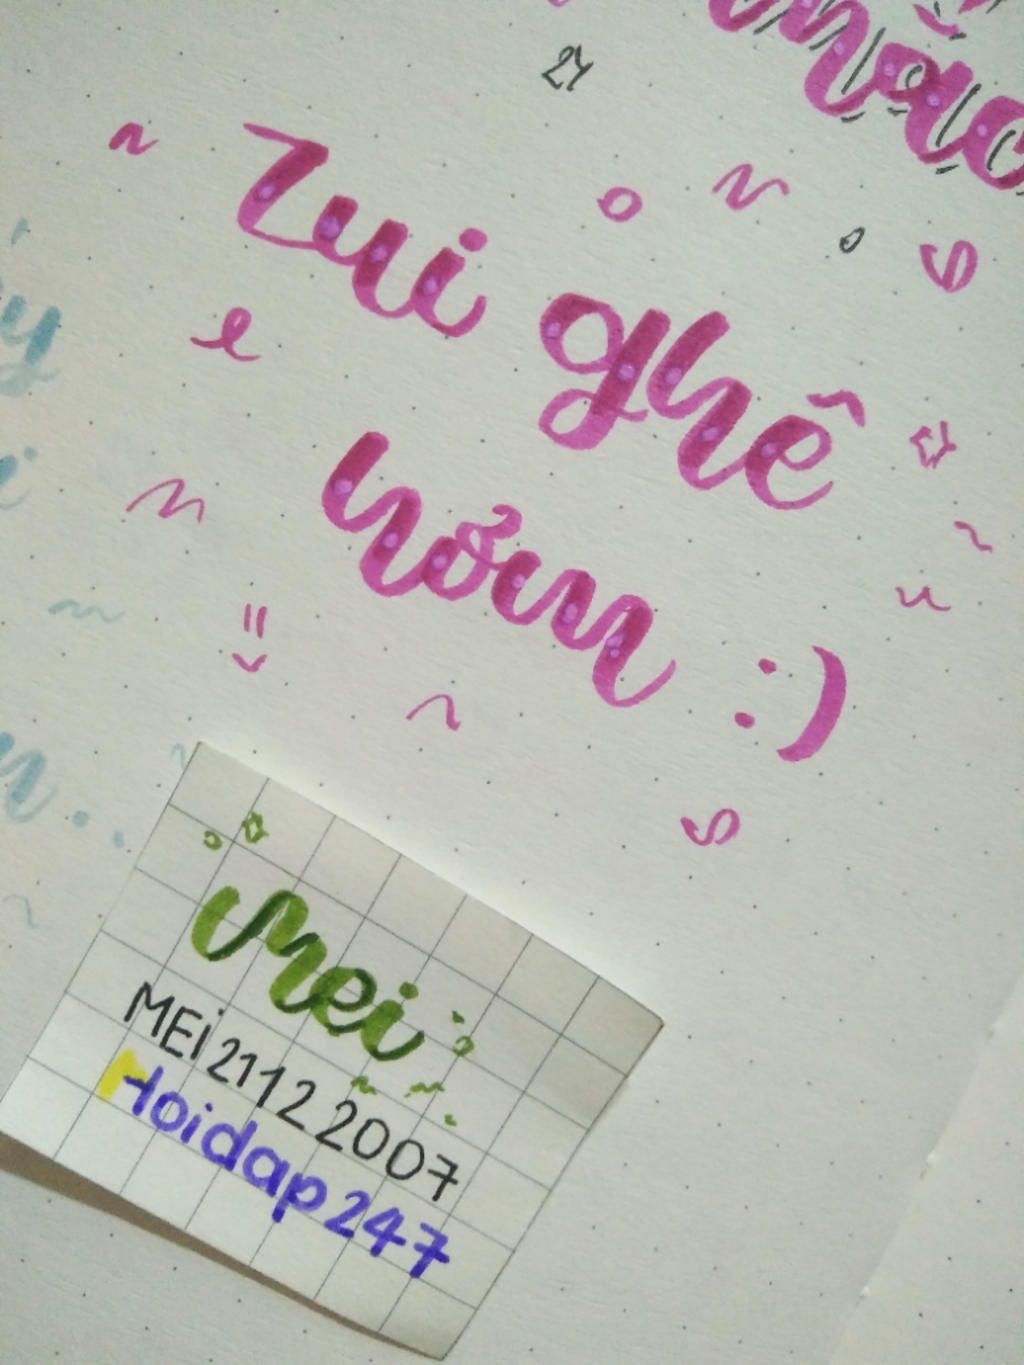 24
Zui ghê
hơm :)
Mei
MEi21122007
Hoidap247